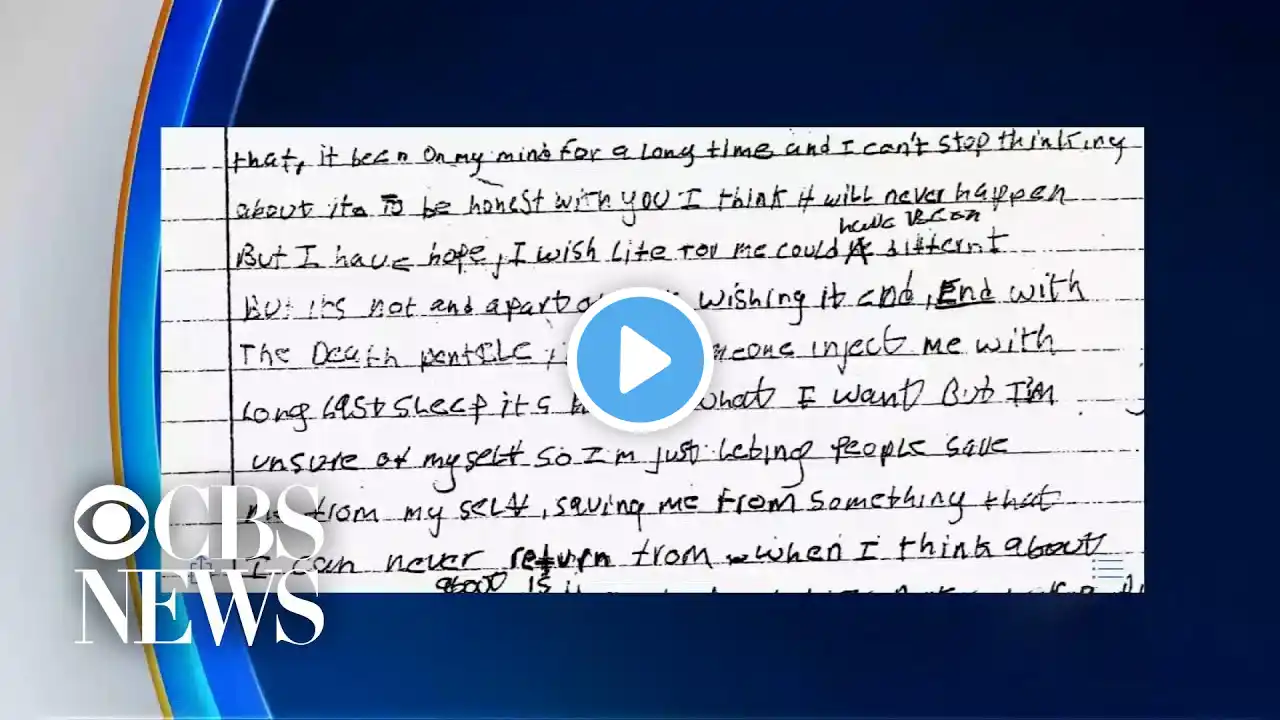 that, it been on my mind for a long time and I can't stop thinking
about it. To be honest with you I think it will never happen
have been
But I have hope, I wish life for me could different
But it's not and apart wishing it end, End with
The Death pentelc, inject me with
Long Last Sleep its what I want But I'm
unsure of myself so I'm just lebing people save
me from my self, saving me from something that
I can never return from when I think about
about is
CBS
NEWS